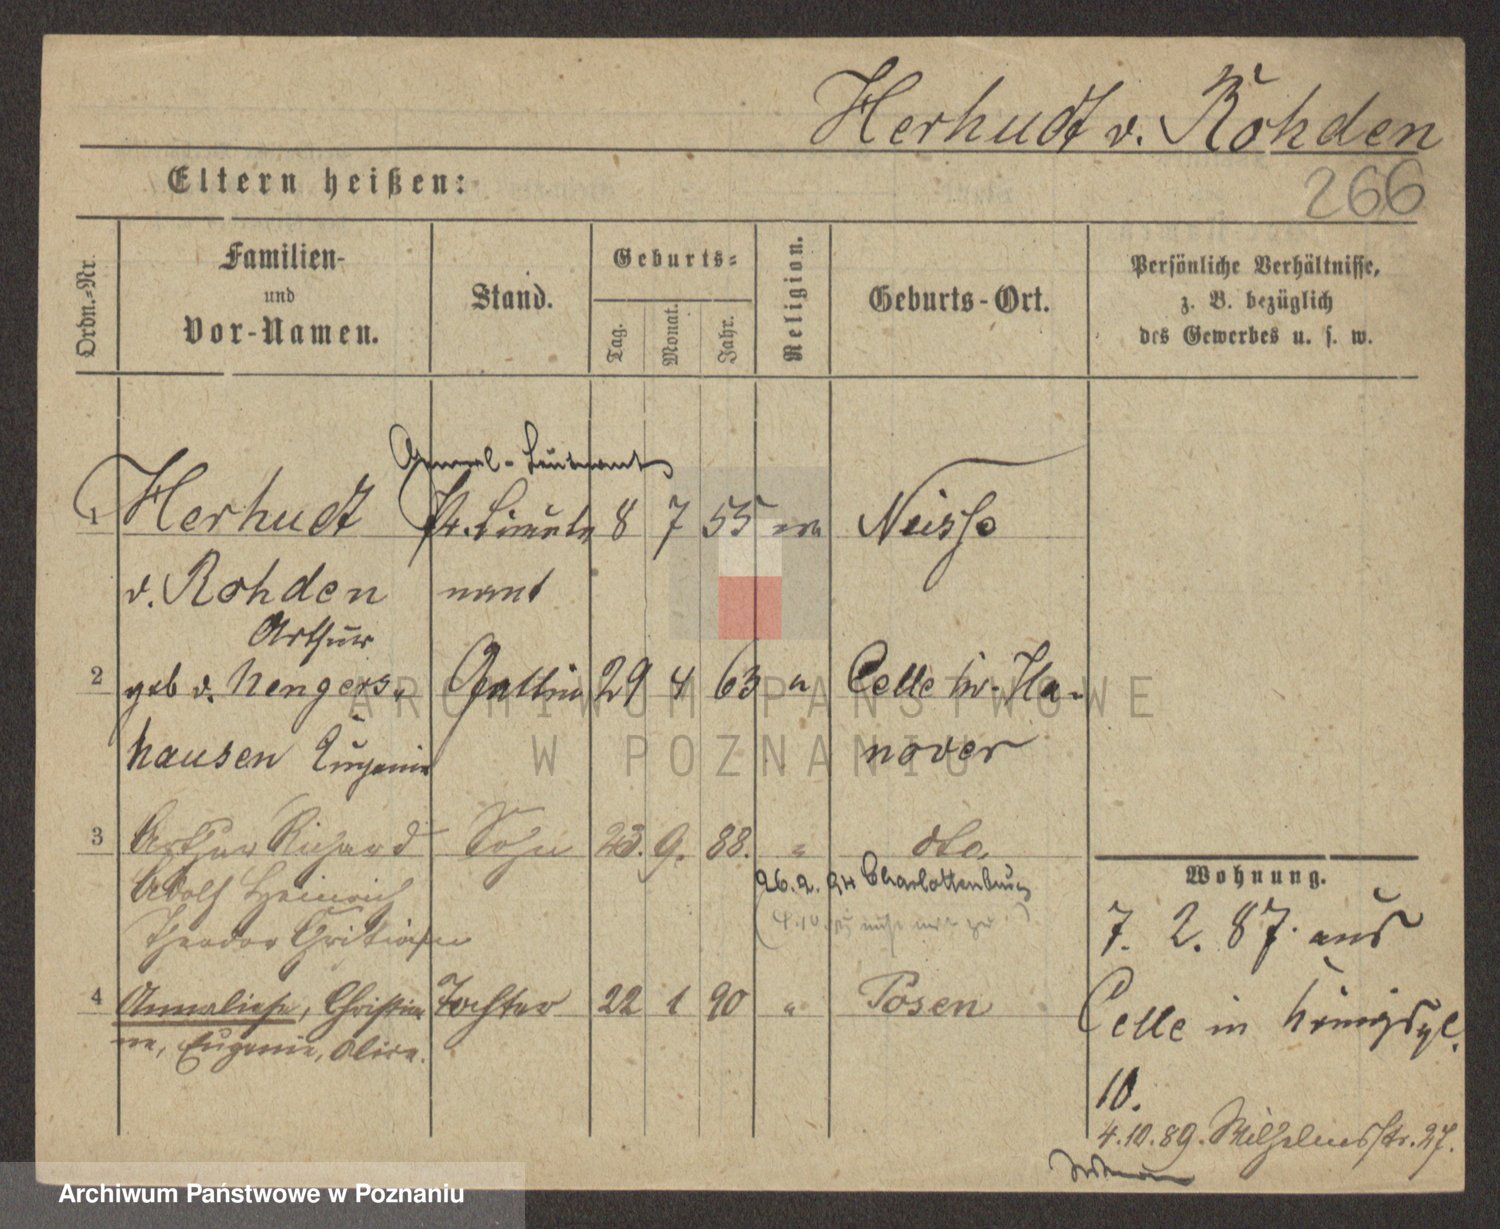 Herhudt v. Rohden
Eltern heißen:
266
Ordn.-Nr.
Familien-
und
Vor-Namen.
Stand.
Geburts-
Tag.
Monat.
Jahr.
Religion.
Geburts-Ort.
Persönliche Verhältnisse,
z. B. bezüglich
des Gewerbes u. s. w.
1 Herhudt Pr. Lieute 8 7 55 ev Neisse
v. Rohden nant
Arthur
2 geb v. Hengers- Gattin 29 4 63 " Celle in Ha-
hausen Eugenie nover
3 Arthur Richard Sohn 23. 9. 88. " dto.
Adolf Heinrich
26. 2. 94 Charlottenburg
Theodor Christian
4 Annaliese, Christia Tochter 22 1 90 " Posen
ne, Eugenie, Alice.
Wohnung.
7. 2. 87. aus
Celle in Königspl.
10.
4.10.89. Wilhelmsstr. 27.
ARCHIWUM PAŃSTWOWE
W POZNANIU
Archiwum Państwowe w Poznaniu